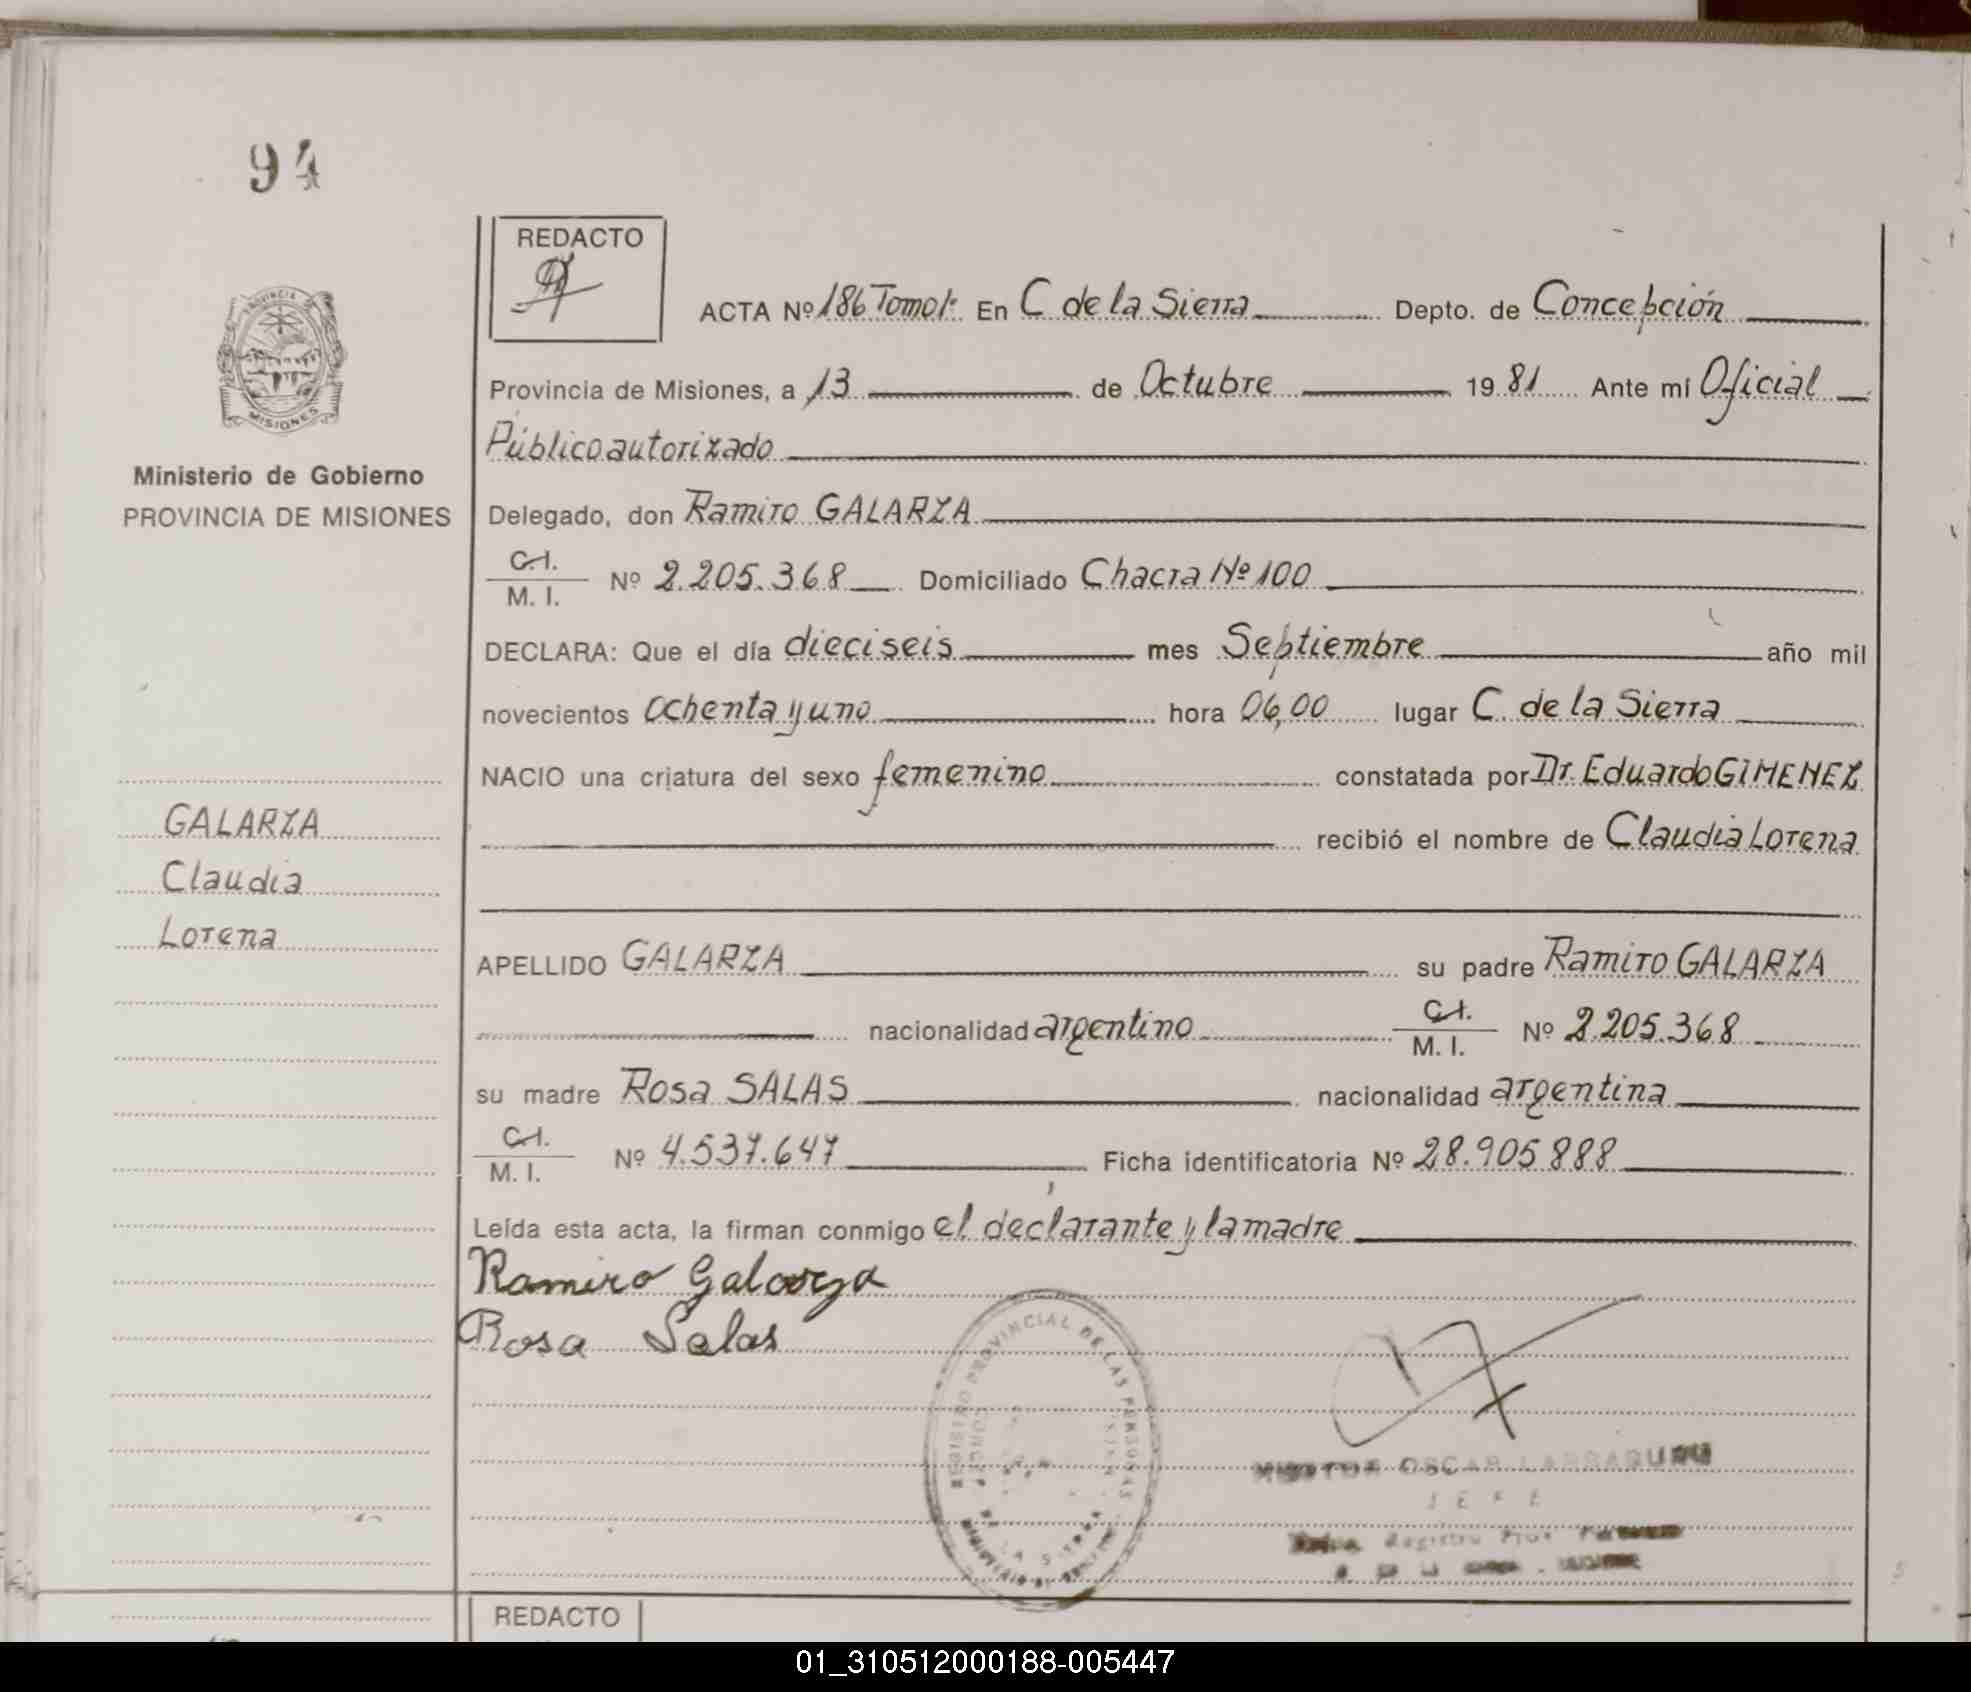 94
REDACTO
ACTA Nº 186 Tomo 1º En C de la Sierra Depto. de Concepción
Provincia de Misiones, a 13 de Octubre 1981 Ante mí Oficial
Público autorizado
PROVINCIA DE
MISIONES
Ministerio de Gobierno
PROVINCIA DE MISIONES
Delegado, don Ramiro GALARZA
C.I.
M. I. Nº 2.205.368 Domiciliado Chacra Nº 100
DECLARA: Que el día dieciseis mes Septiembre año mil
novecientos ochenta y uno hora 06,00 lugar C. de la Sierra
NACIO una criatura del sexo femenino constatada por Dr. Eduardo GIMENEZ
recibió el nombre de Claudia Lorena
GALARZA
Claudia
Lorena
APELLIDO GALARZA su padre Ramiro GALARZA
nacionalidad argentino C.I.
M. I. Nº 2.205.368
su madre Rosa SALAS nacionalidad argentina
C.I.
M. I. Nº 4.537.647 Ficha identificatoria Nº 28.905888
Leída esta acta, la firman conmigo el declarante y la madre
Ramiro Galarza
Rosa Salas
REGISTRO PROVINCIAL DE LAS PERSONAS
OSCAR
JEFE
Registro Prov.
REDACTO
01_310512000188-005447